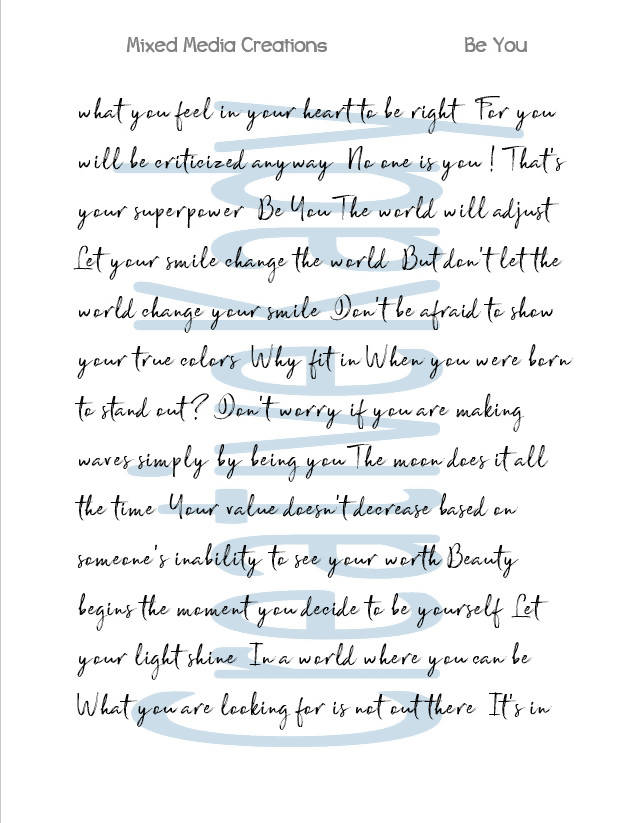 Mixed Media Creations Be You
what you feel in your heart to be right For you
will be criticized anyway No one is you! That's
your superpower Be You The world will adjust
Let your smile change the world But don't let the
world change your smile Don't be afraid to show
your true colors Why fit in When you were born
to stand out? Don't worry if you are making
waves simply by being you The moon does it all
the time Your value doesn't decrease based on
someone's inability to see your worth Beauty
begins the moment you decide to be yourself Let
your light shine In a world where you can be
What you are looking for is not out there It's in